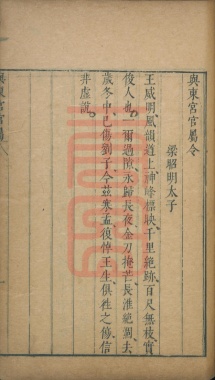 與東宮官屬令
梁昭明太子
王威明風韻遒上神峰標映千里絕跡百尺無枝實
俊人也一爾過隙永歸長夜金刀掩芒長淮絕涸去
歲冬中已傷劉子今茲寒孟復悼王生俱往之傷信
非虛說
與東宮官屬